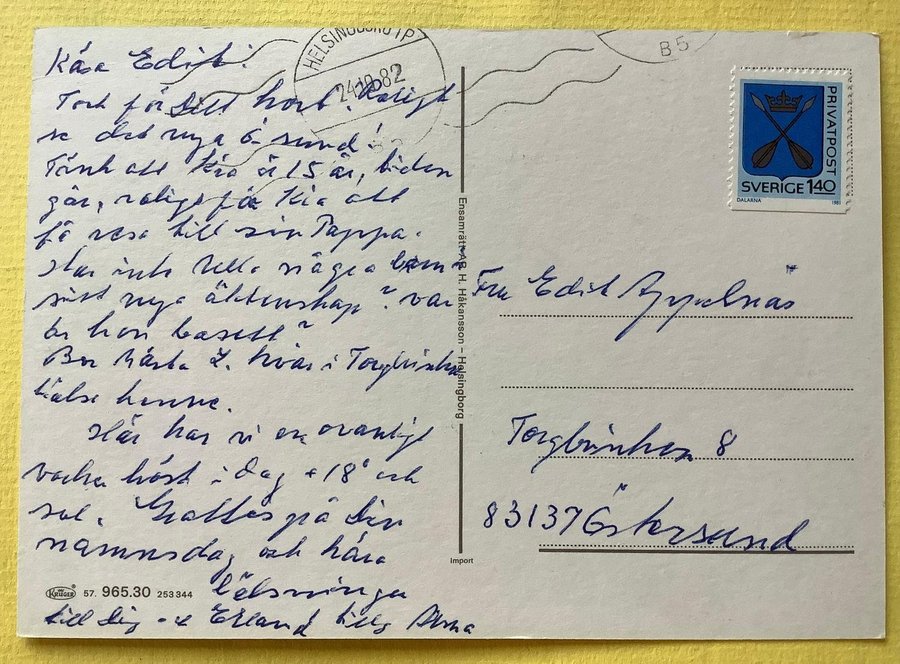 Kära Edit!
Tack för Ditt kort. Roligt
se det nya Ö-sund!
Tänk att Kia är 15 år, tiden
går, roligt för Kia att
få resa till sin Pappa.
Har inte Nella några barn i
sitt nya äktenskap? var
är hon bosatt?
Bor Märta Z. kvar i Torgbrinken
hälsa henne.
Här har vi en ovanligt
vacker höst i dag + 18° och
sol. Grattis på Din
namnsdag och kära
hälsningar
till Dig och Erland
HELSINGBORG 1P
24.10.82
B5
PRIVATPOST
SVERIGE 1.40
DALARNA
1981
Ensamrätt: AB H. Håkansson – Helsingborg
import
Fru Edit Appelnäs
Torgbrinken 8
83137 Östersund
KRÜGER 57. 965.30 253344